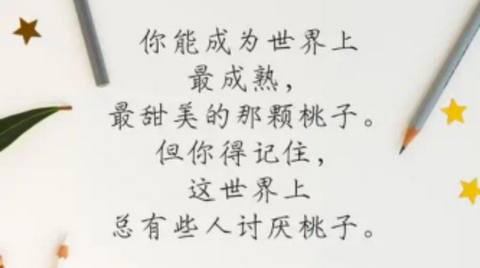 你能成为世界上
最成熟，
最甜美的那颗桃子。
但你得记住，
这世界上
总有些人讨厌桃子。